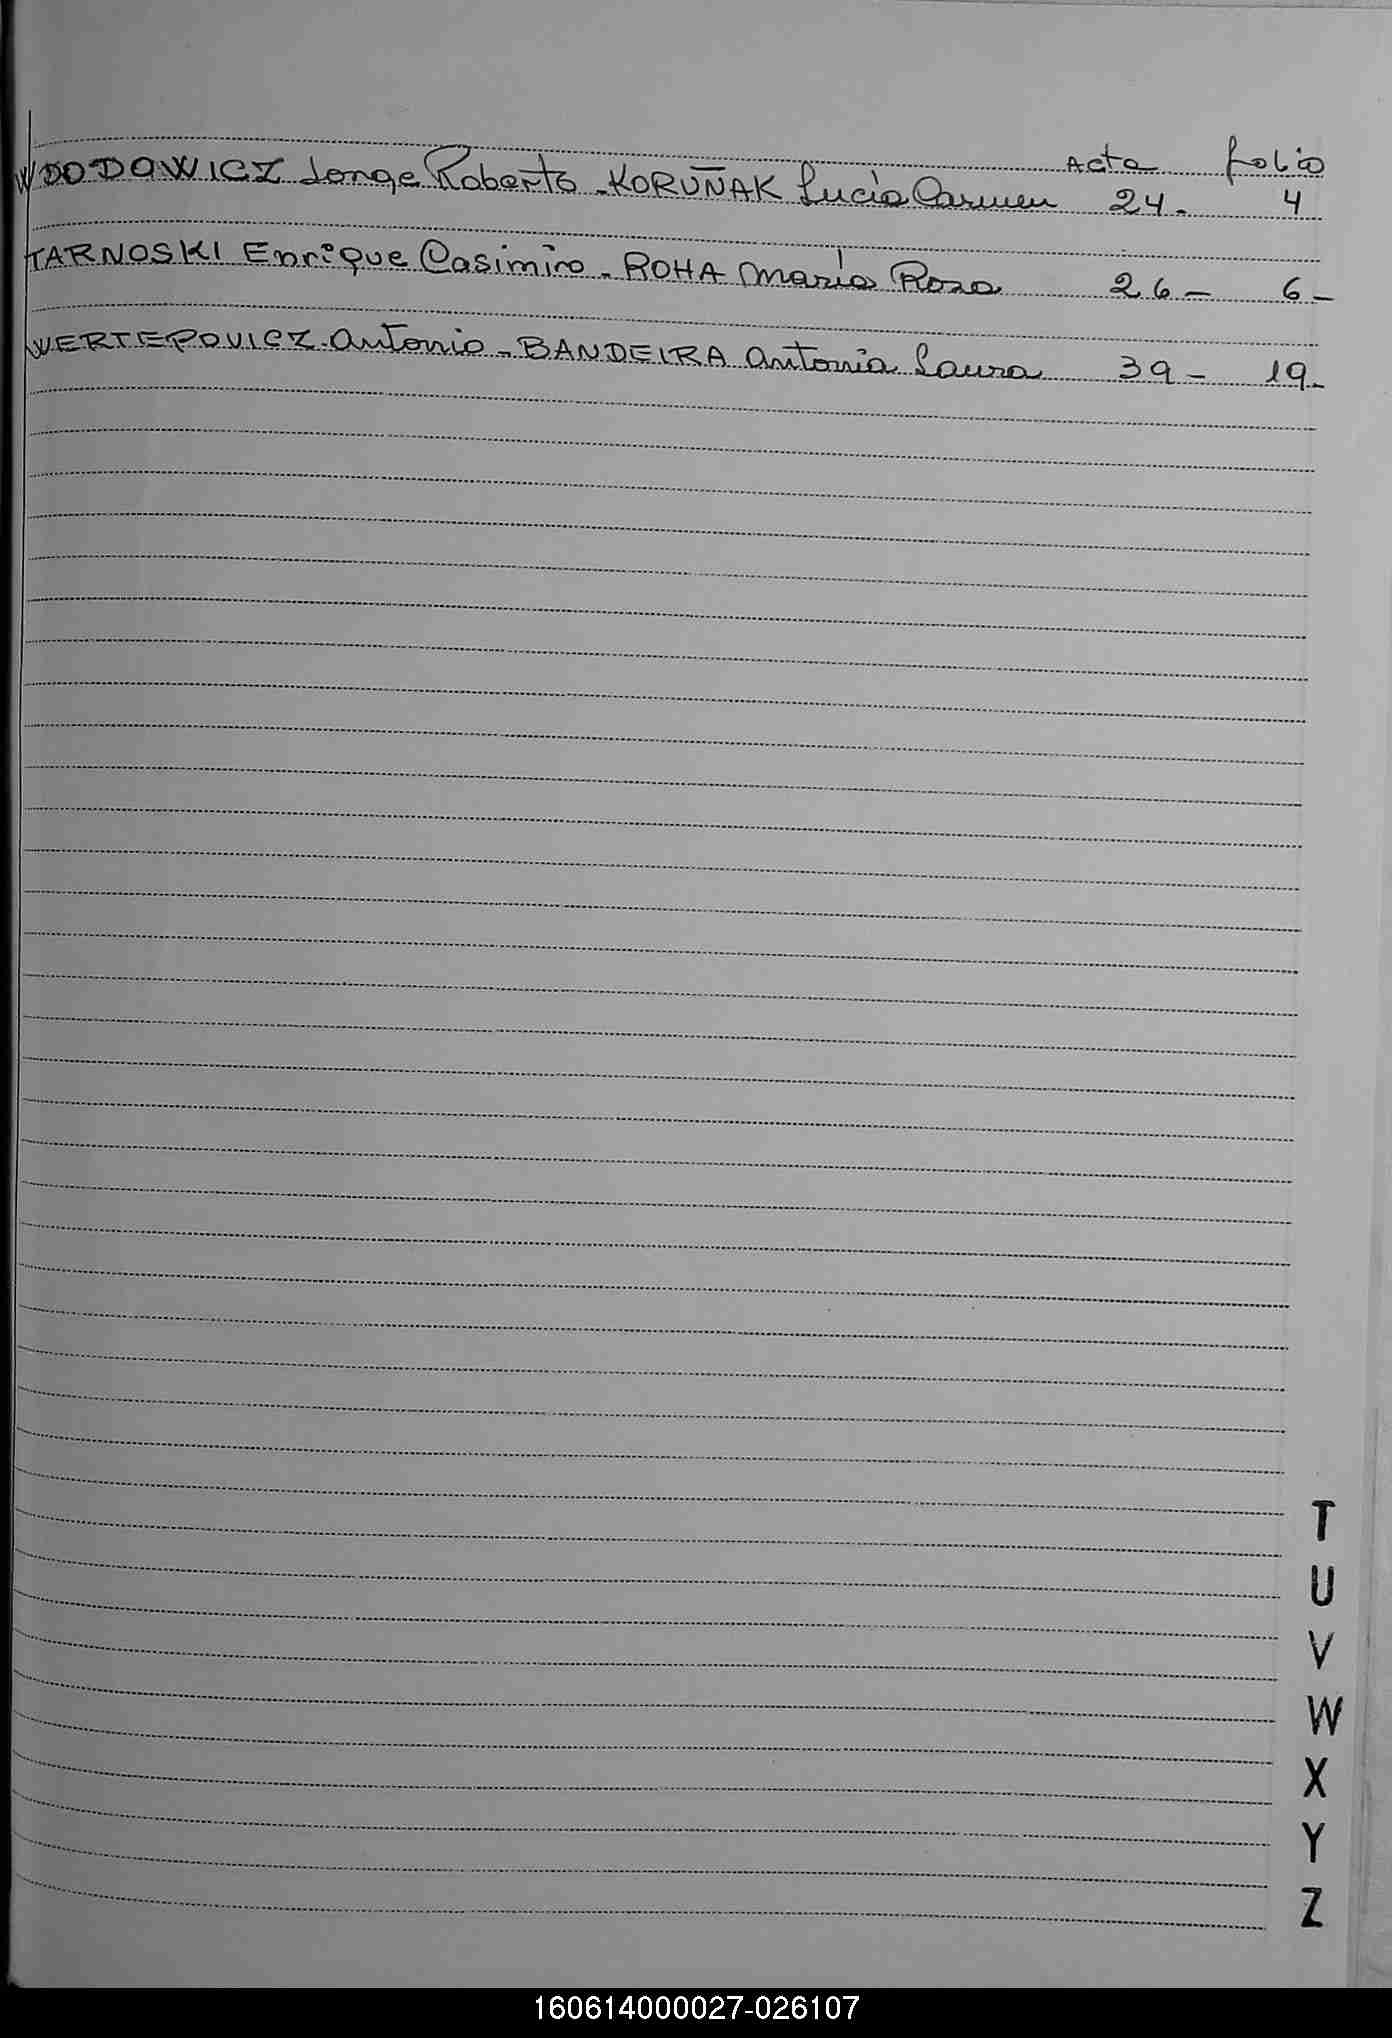 Acta folio
WDODOWICZ Jorge Roberto - KORUÑAK Lucia Carmen 24. 4
TARNOSKI Enrique Casimiro - ROHA Maria Rosa 26 - 6 -
WERTEPOVICZ Antonio - BANDEIRA Antonia Laura 39 - 19 -
T
U
V
W
X
Y
Z
160614000027-026107